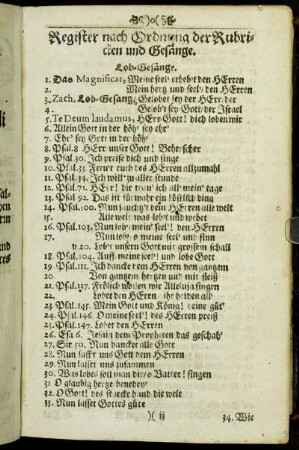 Register nach Ordnung der Rubri-
cken und Gesänge.
Lob-Gesänge.
1. Das Magnificat, Meine seel erhebt den HErren
2. Mein hertz und seel, den HErren
3. Zach. Lob-Gesang, Gelobet sey der HErr, der
4. Gelobt sey Gott, der Israel
5. Te Deum laudamus, HErr Gott! dich loben wir
6. Allein Gott in der höh' sey ehr'
7. Ehr' sey Gott in der höh'
8. Psal. 8 HErr unser Gott! Beherrscher
9. Psal. 30. Ich preise dich und singe
10. Psal. 33. Freuet euch des HErren allzumahl
11. Psal. 34. Ich will zu aller stunde
12. Psal. 71. HErr! dir trau' ich all' mein' tage
13. Psal. 92. Das ist für wahr ein köstlich ding
14. Psal. 100. Nun jauchzt dem HErren alle welt
15. Alle welt, was lebt und webet
16. Psal. 103. Nun lob, mein' seel'! den HErren
17. Nun lob, o meine seel' und sinn
v 20. Lob' unsern Gott mit grossem schall
18. Psal. 104. Auff, meine seel'! und lobe Gott
19. Psal. 111. Ich dancke dem HErren von gantzem
20. Von gantzem hertzen und mit fleiß
21. Psal. 117. Frölich wollen wir Alleluja singen
22. Lobet den HErren ihr heiden all
23. Psal. 145. Mein Gott und König! deine güt'
24. Psal. 146. O meine seel'! des HErren preiß
25. Psal. 147. Lobet den HErren
26. Esa. 6. Jesaja dem Propheten das geschah'
27. Sir. 50. Nun dancket alle Gott
28. Nun lasst uns Gott dem HErren
29. Nun lasset uns zusammen
30. Was lobes soll man dir, o Vatter! singen
31. O glaubig hertze benedey'
32. O Gott! des starcke hand die welt
33. Nun lasset Gottes güte
)( ij 34. Wie